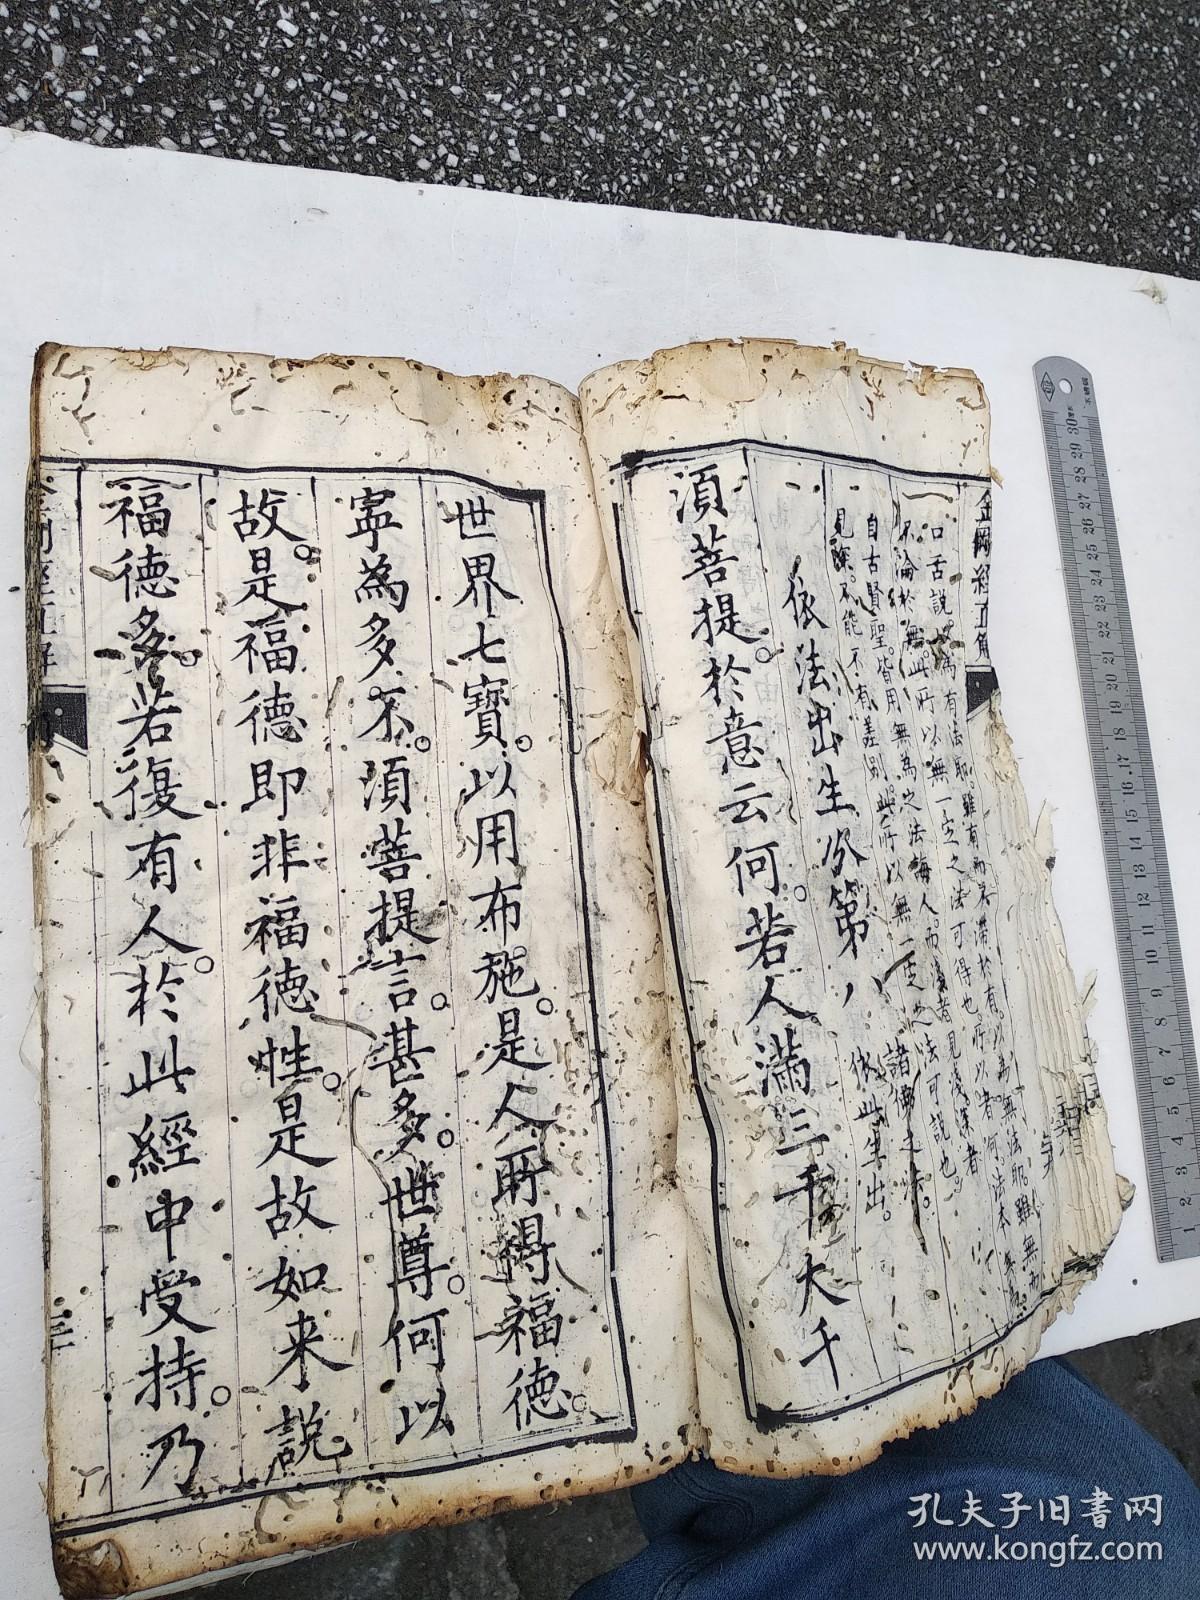 金剛經直解
口舌說
為有法耶。雖有而不滯於有。以為無法耶。雖無而
不論於無。此所以無一定之法可得也。所以者何。法本
自古賢聖。皆用無為之法。誨人而淺者見淺。深者
見深。不能不有差別。此所以無一定之法可說也。
依法出生分第八
諸佛之法。
依此生出。
須菩提。於意云何。若人滿三千大千
世界七寶。以用布施。是人所得福德。
寧為多不。須菩提言。甚多。世尊。何以
故。是福德即非福德性。是故如来說
福德多。若復有人。於此經中受持。乃
孔夫子旧書网
www.kongfz.com